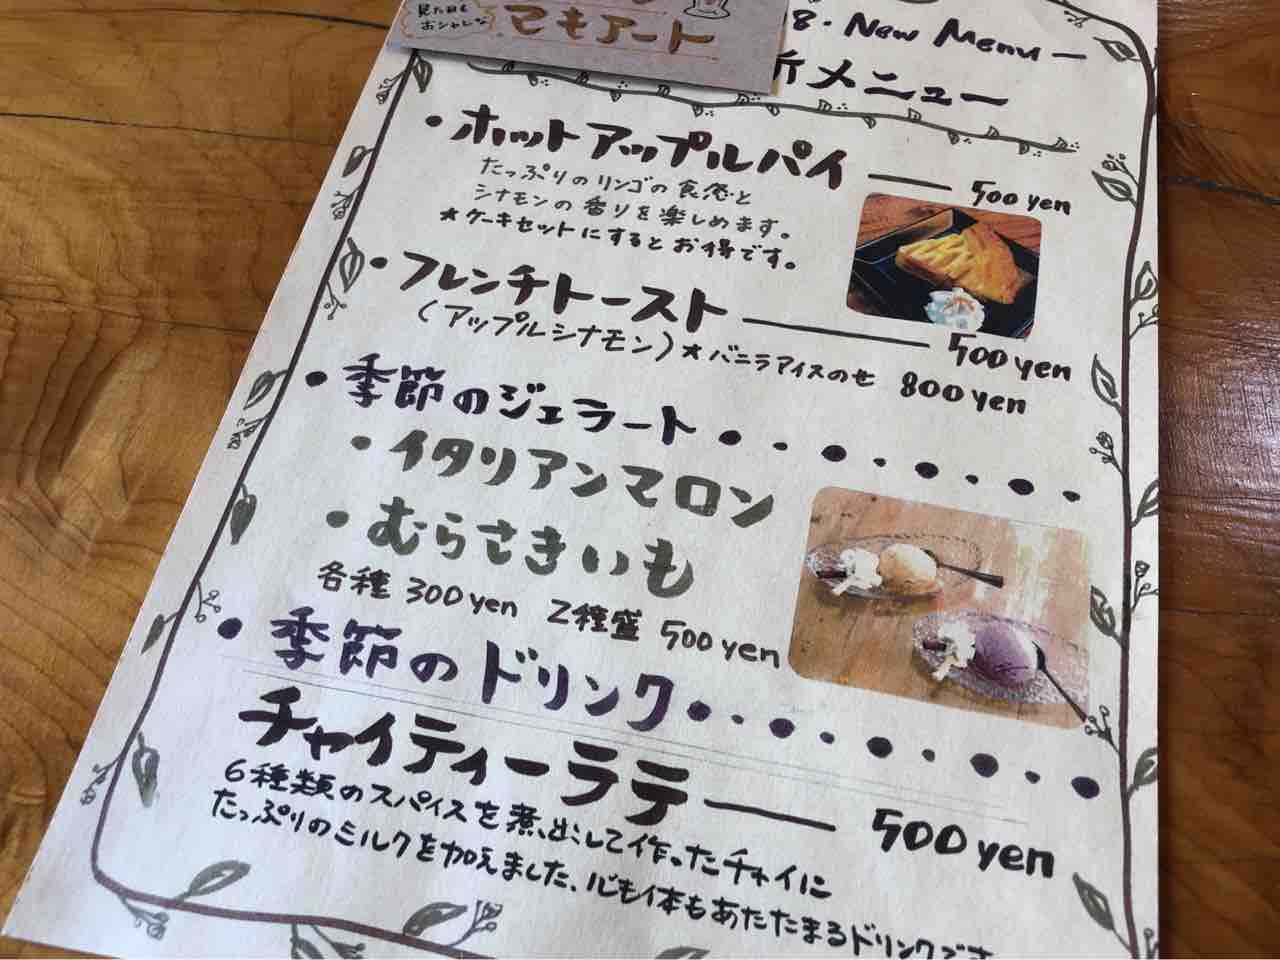 見た目も
おシャレな
てもアート
8・New Menu ー
メニュー
・ホットアップルパイ — 500 yen
たっぷりのリンゴの食感と
シナモンの香りを楽しめます。
★ケーキセットにするとお得です。
・フレンチトースト — 500 yen
(アップルシナモン)★バニラアイスのせ 800 yen
・季節のジェラート
・イタリアンマロン
・むらさきいも
各種 300 yen 2種盛 500 yen
・季節のドリンク
チャイティーラテ — 500 yen
6種類のスパイスを煮出して作ったチャイに
たっぷりのミルクを加えました、心も体もあたたまるドリンクでさ